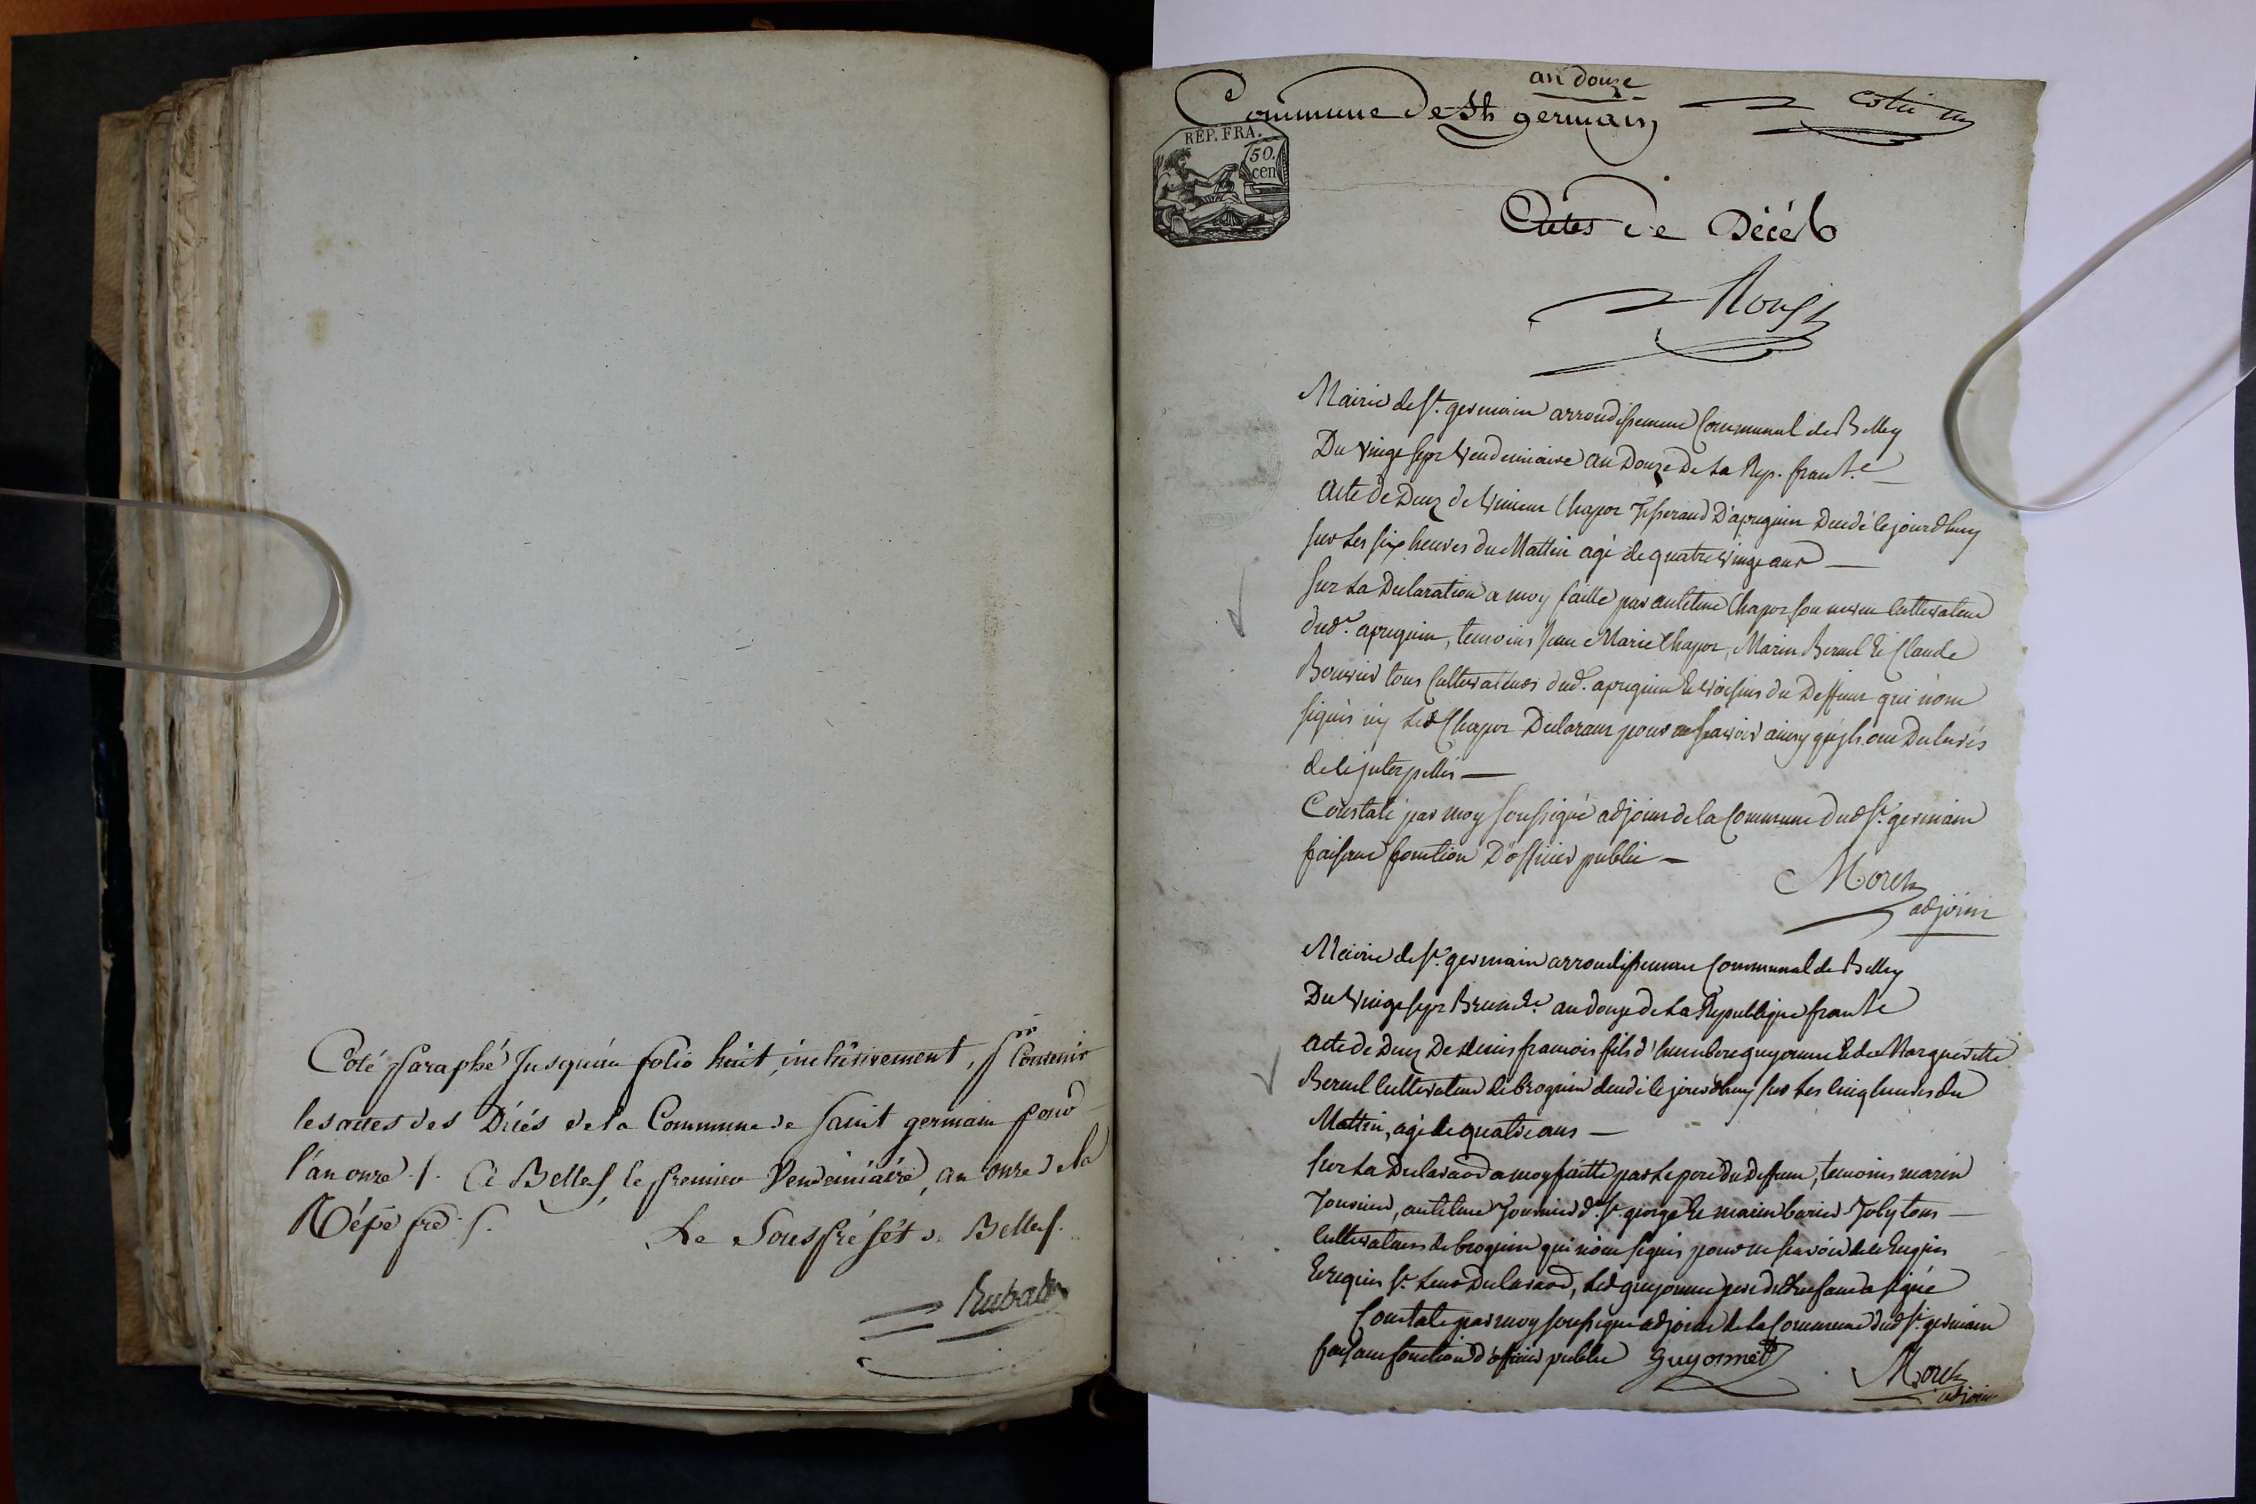 Coté Paraphé Jusqu'au folio huit, inclusivement, pr Contenir
les actes des Décés de la Commune de saint germain pour
l'an onze ./. A Belley, le premier Vendémiaire, an onze de la
Répe fre ./.
Le Sous préfét de Belley.
Rubat
an douze
Commune de St germain
coté un
REP. FRA.
50.
cen
Actes de Décés
Mairie de St. germain arrondissement Communal de Belley
Du vingt sept Vendemiaire an Douze De La Rep. franse
Acte de Decez de Vincent Chapot Tisserand D'apregnin Decedé le jourdhuy
sur Les six heures du Mattin agé de quatre vingt ans
sur La Declaration a moy faitte par antelme Chapot son neveu Cultivateur
dud. apregnin, temoins Jean Marie Chapot, Marin Berrel et Claude
Bouvier tous Cultivateurs dud. apregnin et voisins du Deffunt qui nont
signés ny Led Chapot Declarant pour ne scavoir ainsy quils ont Declarés
de ce interpellés
Constaté par moy soussigné adjoint de la Commune dud St. germain
faisant fonction D'officier public
Morel
adjoint
Mairie de St. germain arrondissement Communal de Belley
Du Vingt sept Brumre. an douze de La Republique franse
Acte de Decez De denis francois fils d'humbert guyonnet et de Marguéritte
Berrel Cultivateur de brognin decedé le jourdhuy sur Les cinq heures du
Mattin, agé de quatre ans
sur La Declaraon a moy faitte par Le pere du Deffunt, temoins marin
Tournier, antelme Tournier dt. St. george et marin Joly tous
Cultivateurs de brognin qui n'ont signés pour ne scavoir de ce Enquis
Et requis St. Leur Declaraon, Led guyonnet pere dud Enfant a signé
Constaté par moy soussigné adjoint de La Commune dud St. germain
faisant fonction d'officier public Guyonnet
Morel
adjoint